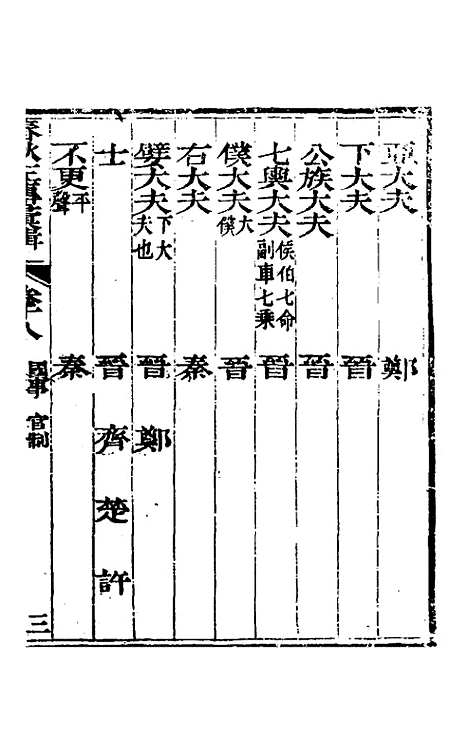 亞大夫 鄭
下大夫 晉
公族大夫 晉
七輿大夫 侯伯七命副車七乘 晉
僕大夫 大僕 晉
右大夫 秦
嬖大夫 下大夫也 晉 鄭
士 晉 齊 楚 許
不更 平聲 秦
春秋左傳彙輯 卷八 國事 官制 三